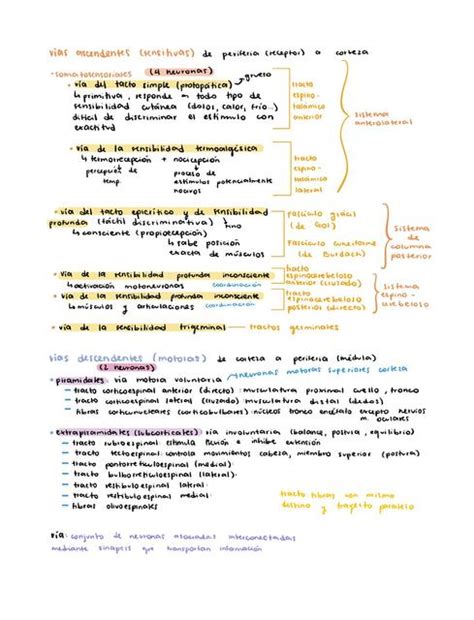 vías ascendentes (sensitivas) de periferia (receptor) a corteza
• somatosensoriales (4 neuronas)
• vía del tacto simple (protopática) → grueso
↳ primitiva, responde a todo tipo de
sensibilidad cutánea (dolos, calor, frío...)
difícil de discriminar el estímulo con
exactitud
tracto
espino-
talámico
anterior
• vía de la sensibilidad termoalgésica
↳ termorrecepción + nocicepción
percepción de
temp.
proceso de
estímulos potencialmente
nocivos
tracto
espino-
talámico
lateral
sistema
anterolateral
• vía del tacto epicrítico y de sensibilidad
profunda (táctil discriminativa) fino
↳ consciente (propiocepción)
↳ sabe posición
exacta de músculos
Fascículo grácil
(de Gol)
Fascículo cuneiforme
(de Burdach)
sistema
de
columna
posterior
• vía de la sensibilidad profunda inconsciente
↳ activación motoneuronas coordinación
tracto
espinocerebeloso
anterior (cruzado)
• vía de la sensibilidad profunda inconsciente
↳ músculos y articulaciones coordinación
tracto
espinocerebeloso
posterior (directo)
sistema
espino-
cerebeloso
• vía de la sensibilidad trigeminal — tractos geminales
vías descendentes (motoras) de corteza a periferia (médula)
(2 neuronas)
neuronas motoras superiores corteza
• piramidales vía motora voluntaria
— tracto corticoespinal anterior (directo): musculatura proximal cuello, tronco
— tracto corticoespinal lateral (cruzado) musculatura distal (dedos)
— fibras corticonucleares (corticobulbares): núcleos tronco encéfalo excepto nervios
m. oculares
• extrapiramidales (subcorticales) vía involuntaria (balance, postura, equilibrio)
— tracto rubroespinal: estimula flexión e inhibe extensión
— tracto tectoespinal: controla movimientos cabeza, miembro superior (postura)
— tracto pontorreticuloespinal (medial):
— tracto bulborreticuloespinal (lateral):
— tracto vestibuloespinal lateral:
— tracto vestibuloespinal medial:
— fibras olivoespinales
tracto fibras con mismo
destino y trayecto paralelo
vía: conjunto de neuronas asociadas interconectadas
mediante sinapsis que transportan información